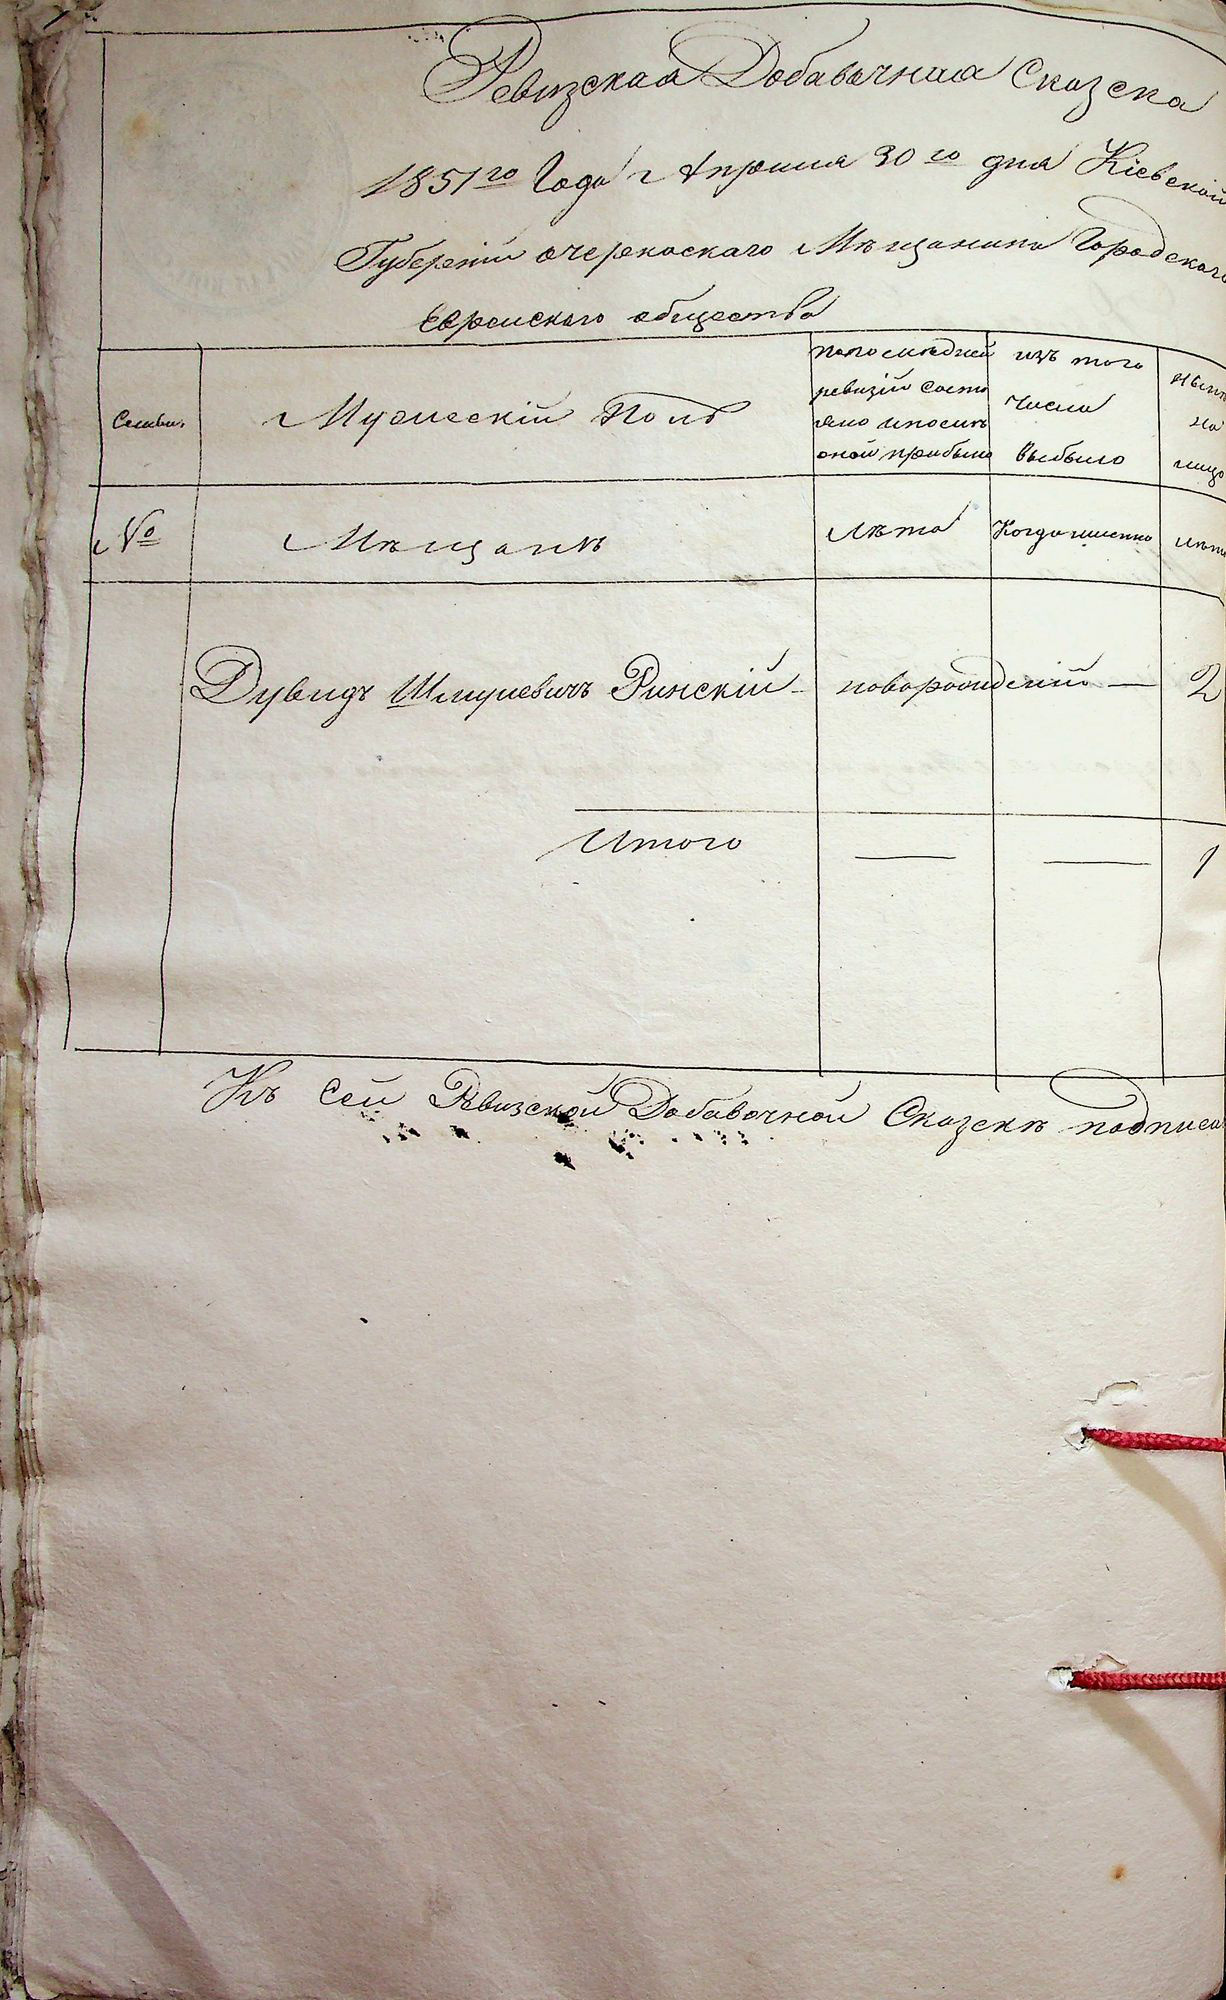 Ревизская Добавочная Сказска
1851го Года Апреля 30го дня Кіевской
Губерніи очеркаскаго Мѣщанина Городскаго
Еврейскаго общества
Семьи
Мужескій Полъ
по последней
ревизіи состо
яло и после
оной прибыло
изъ того
числа
выбыло
ныне
на
лицо
№
Мѣщанъ
Лѣта
Когда именно
лѣта
Дувидъ Шмулевичъ Ринскій — новорожденій — 2
Итого — — 1
Къ Сей Рѣвизской Добавочной Сказскѣ подписа